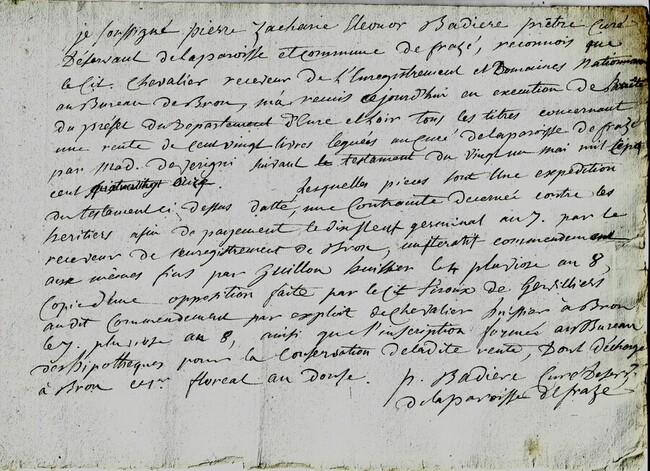 je soussigné pierre Zacharie Eleonor Badiere prêtre Curé
Desservant delaparoisse et commune de frazé, reconnois que
le Cit. Chevalier receveur de L'Enregistrement et Domaines Nationnaux
au Bureau de Brou, m'a remis cejourd'hui en execution de
du préfet du Departement d'Eure et Loir tous les titres concernant
une rente de Cent vingt livres leguées au Curé delaparoisse de frazé
par Mad. de suivant le testament du vingt un mai mil sept
cent Lesquelles pieces sont Une expédition
du testament ci dessus datté, une Contrainte decernée contre les
heritiers afin de payement le dix neuf germinal an 7. par le
receveur de l'enregistrement de Brou, un iteratif commendement
aux mêmes fins par Guillon huissier le 4 pluviose an 8,
Copie d'une opposition faite par le Cit de
audit Commendement par exploit de Chevalier huissier à Brou
le 7. pluviose an 8, ainsi que l'inscription formée au Bureau
des hipotheques pour la Conservation de ladite rente, Dont décharge
à Brou ce floreal an douse. p. Badiere Curé Desserv.t
delaparoisse de frazé